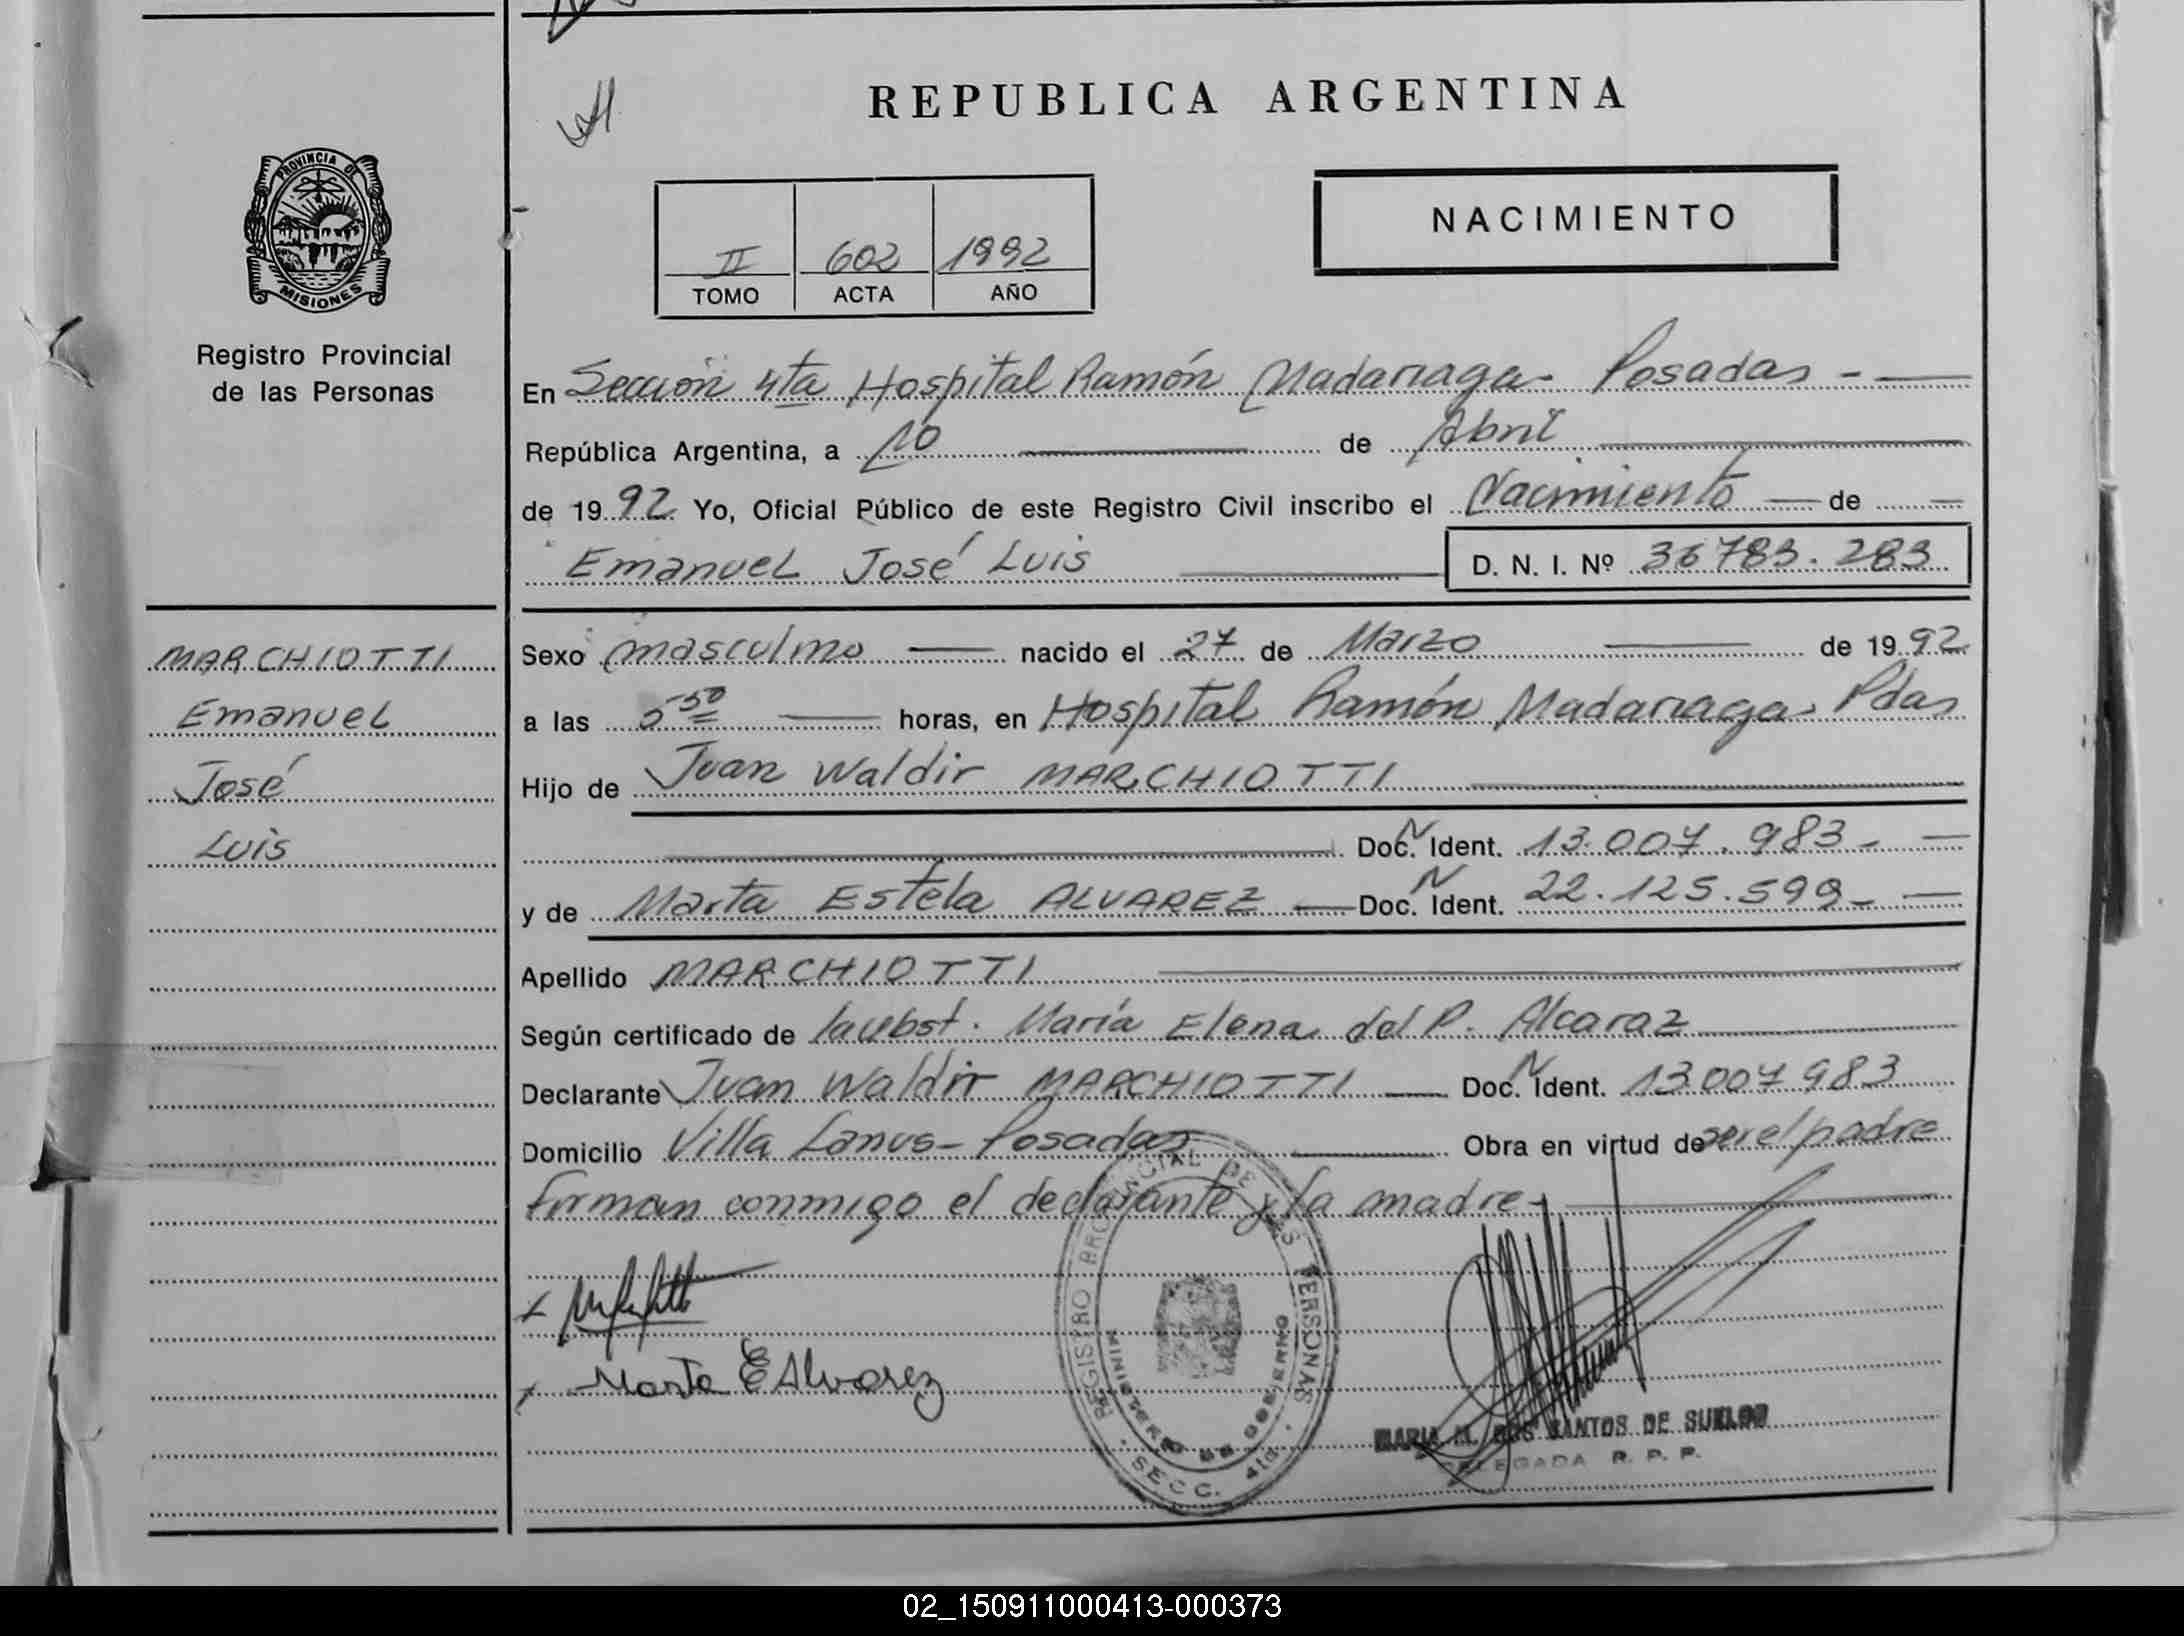 REPUBLICA ARGENTINA
PROVINCIA DE
MISIONES
Registro Provincial
de las Personas
II 602 1992
TOMO ACTA AÑO
NACIMIENTO
En Sección 4ta Hospital Ramón Madariaga - Posadas -
República Argentina, a 10 de Abril
de 1992 Yo, Oficial Público de este Registro Civil inscribo el Nacimiento de
Emanuel José Luis D. N. I. Nº 36783.283
MARCHIOTTI
Emanuel
José
Luis
Sexo masculino nacido el 27 de Marzo de 1992
a las 5 50 horas, en Hospital Ramón Madariaga. Pdas
Hijo de Juan Waldir MARCHIOTTI
Doc. N Ident. 13.007.983 -
y de Marta Estela ALVAREZ Doc. N Ident. 22.125.599 -
Apellido MARCHIOTTI
Según certificado de la obst. María Elena del P. Alcaraz
Declarante Juan Waldir MARCHIOTTI Doc. N Ident. 13007983
Domicilio Villa Lanus - Posadas Obra en virtud de ser el padre
firman conmigo el declarante y la madre -
x
x Marta E Alvarez
REGISTRO PROVINCIAL DE LAS PERSONAS
MINISTERIO DE GOBIERNO
SECC. 4ta.
MARIA M. DOS SANTOS DE
DELEGADA R. P. P.
02_150911000413-000373